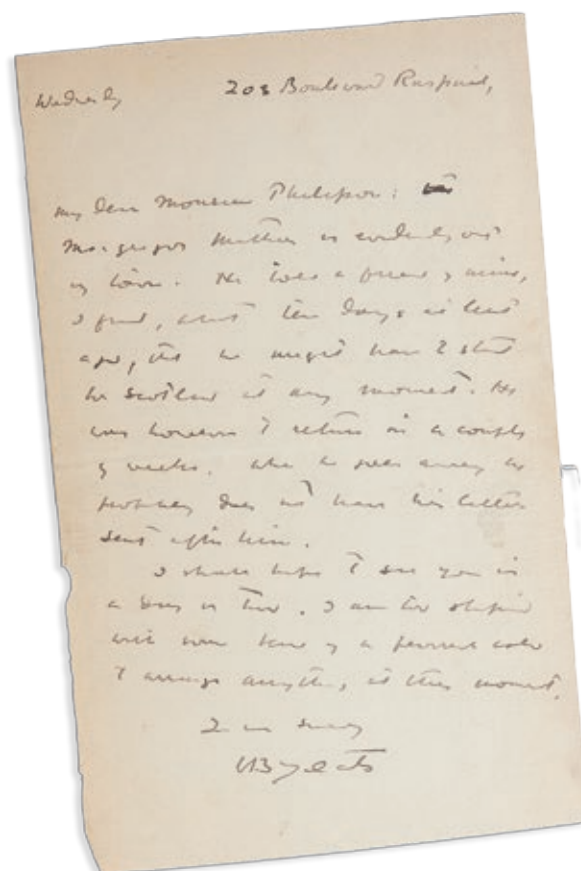 Wednesday 203 Boulevard Raspail,
My dear Monsieur Philipon:
Macgregor Mathers is evidently out
of town. He told a friend of mine,
I find, about ten days at least
ago, that he might have to start
for Scotland at any moment. He
was however to return in a couple
of weeks. When he goes away he
probably does not have his letters
sent after him.
I shall hope to see you in
a day or two. I am too stupid
with some kind of a feverish cold
to arrange anything at this moment.
Yrs sincely
WB Yeats